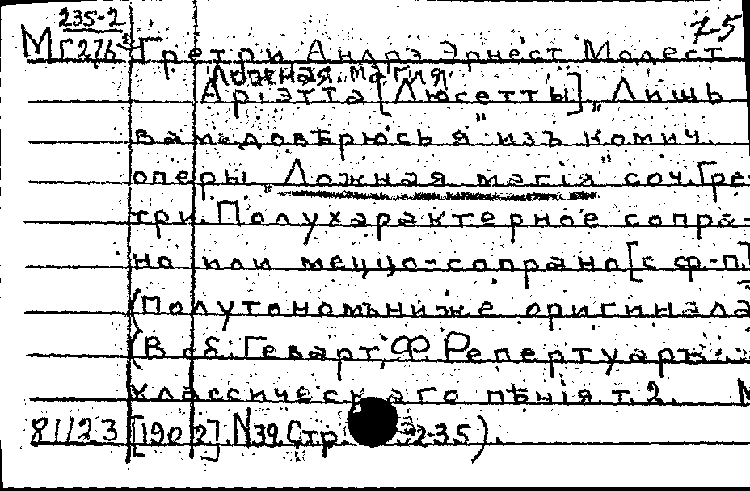 235-2
75
Мг276 Гретри Андрэ Эрнест Модест
Ложная магия.
Ариэтта [Люсетты] „Лишь
вамъ довѣрюсь я" изъ комич.
оперы „Ложная магія" соч. Гре-
три. Полухарактерное сопра-
но или меццо-сопрано [с ф.-п.]
(Полутономъ ниже оригинала
(В сб.: Геварт, Ф. Репертуаръ
классическаго пѣнія т. 2. М
81123 [1902]. N39. Стр. 232-235).